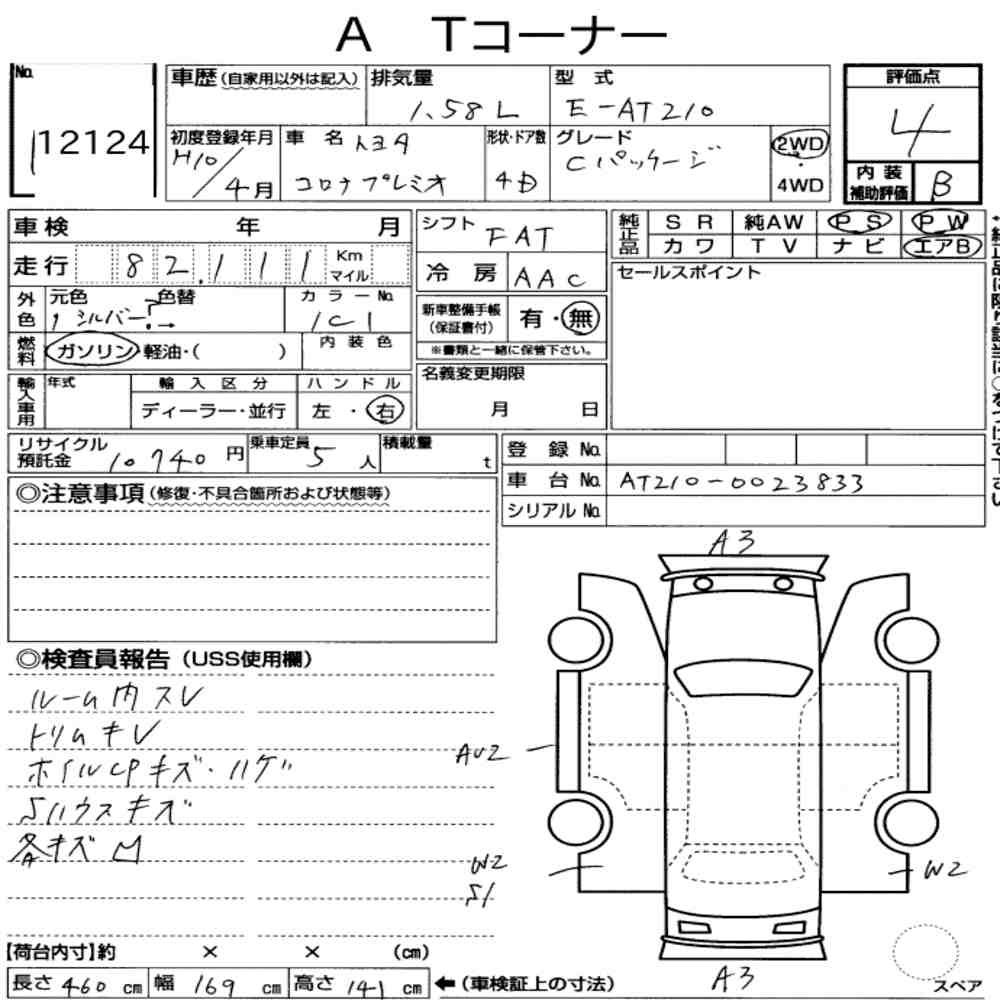 A Tコーナー
No. 12124
車歴(自家用以外は記入) 排気量 1.58L 型式 E-AT210
初度登録年月 H10/4月 車名 トヨタ コロナプレミオ 形状・ドア数 4D グレード Cパッケージ 2WD・4WD
評価点 4
内装補助評価 B
車検 年 月
走行 82,111 Km マイル
外色 元色 シルバー 色替 → カラーNo. 1C1
燃料 ガソリン・軽油・( ) 内装色
輸入車用 年式 輸入区分 ディーラー・並行 ハンドル 左・右
シフト FAT
冷房 AAC
新車整備手帳(保証書付) 有・無
※書類と一緒に保管下さい。
名義変更期限 月 日
純正品 SR 純AW PS PW
カワ TV ナビ エアB
セールスポイント
リサイクル預託金 10,740円 乗車定員 5人 積載量 t
登録No.
車台No. AT210-0023833
シリアルNo.
◎注意事項(修復・不具合箇所および状態等)
◎検査員報告(USS使用欄)
ルーム内スレ
トリムキレ
ホイルCPキズ・ハゲ
Sハウスキズ
各キズ凹
A3
AU2
W2
S1
W2
A3
スペア
【荷台内寸】約 × × (cm)
長さ 460 cm 幅 169 cm 高さ 141 cm ←(車検証上の寸法)